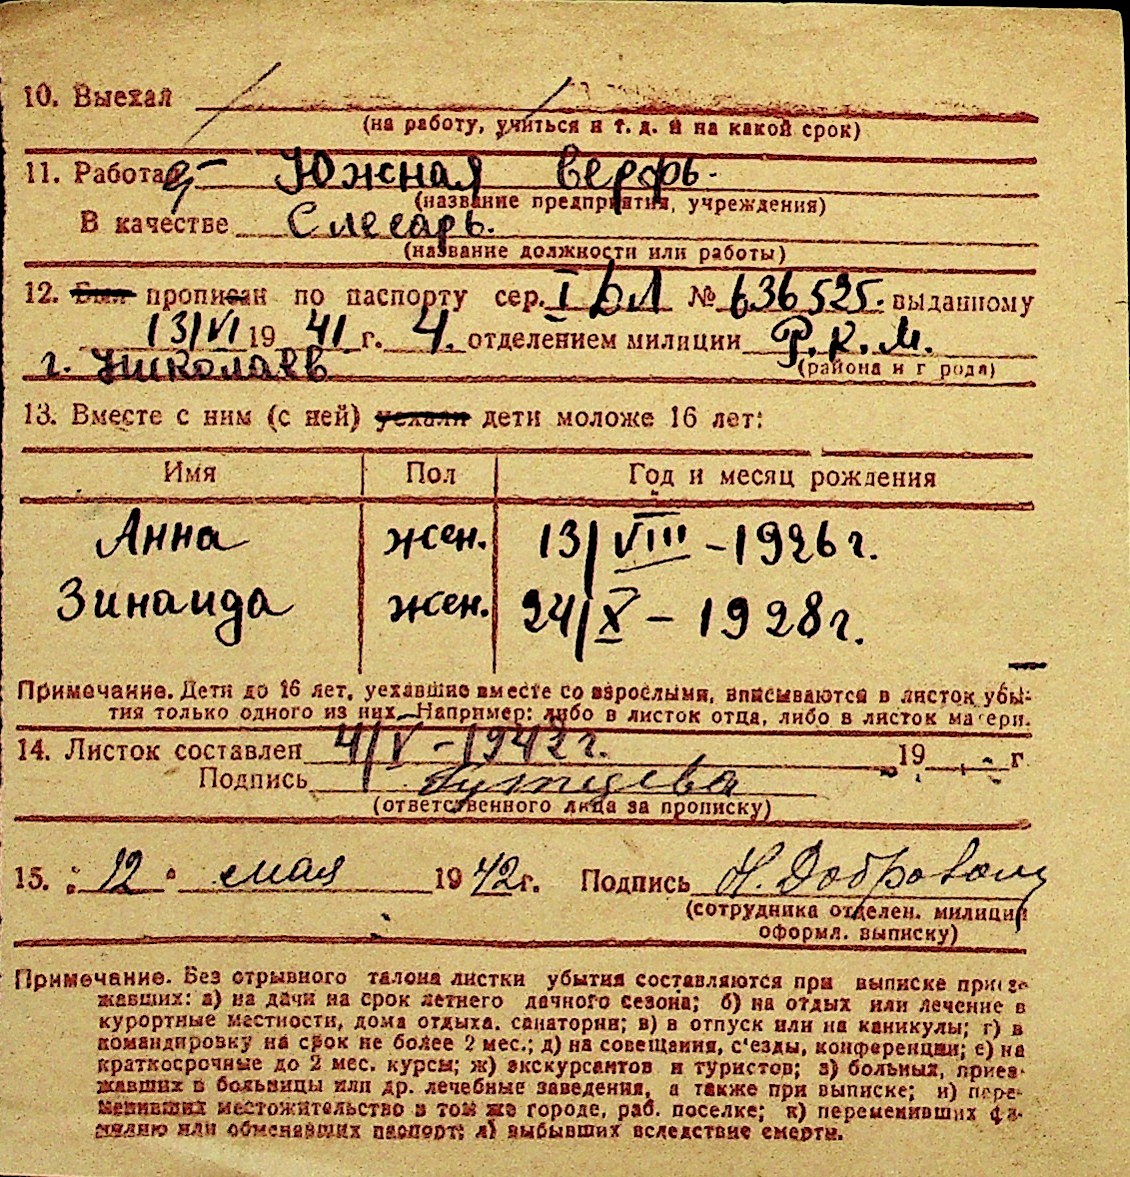 10. Выехал
(на работу, учиться и т. д. и на какой срок)
11. Работа Южная верфь.
(название предприятия, учреждения)
В качестве Слесарь.
(название должности или работы)
12. Был прописан по паспорту сер. I БЛ № 636525. выданному
13/VI 19 41 г. 4. отделением милиции Р.К.М.
г. Николаев (района и г рода)
13. Вместе с ним (с ней) уехали дети моложе 16 лет:
Имя Пол Год и месяц рождения
Анна жен. 13/VIII-1926г.
Зинаида жен. 24/X-1928г.
Примечание. Дети до 16 лет, уехавшие вместе со взрослыми, вписываются в листок убы-
тия только одного из них. Например: либо в листок отца, либо в листок матери.
14. Листок составлен 4/V-1942г. 19 г
Подпись
(ответственного лица за прописку)
15. "12" мая 19 42г. Подпись Н. Добровол
(сотрудника отделен. милиции
оформл. выписку)
Примечание. Без отрывного талона листки убытия составляются при выписке приезжавших:
жавших: а) на дачи на срок летнего дачного сезона; б) на отдых или лечение в
курортные местности, дома отдыха, санатории; в) в отпуск или на каникулы; г) в
командировку на срок не более 2 мес.; д) на совещания, с'езды, конференции; е) на
краткосрочные до 2 мес. курсы; ж) экскурсантов и туристов; з) больных, приез-
жавших в больницы или др. лечебные заведения, а также при выписке; и) пере-
менивших местожительство в том же городе, раб. поселке; к) переменивших фа-
милию или обменявших паспорт; л) выбывших вследствие смерти.